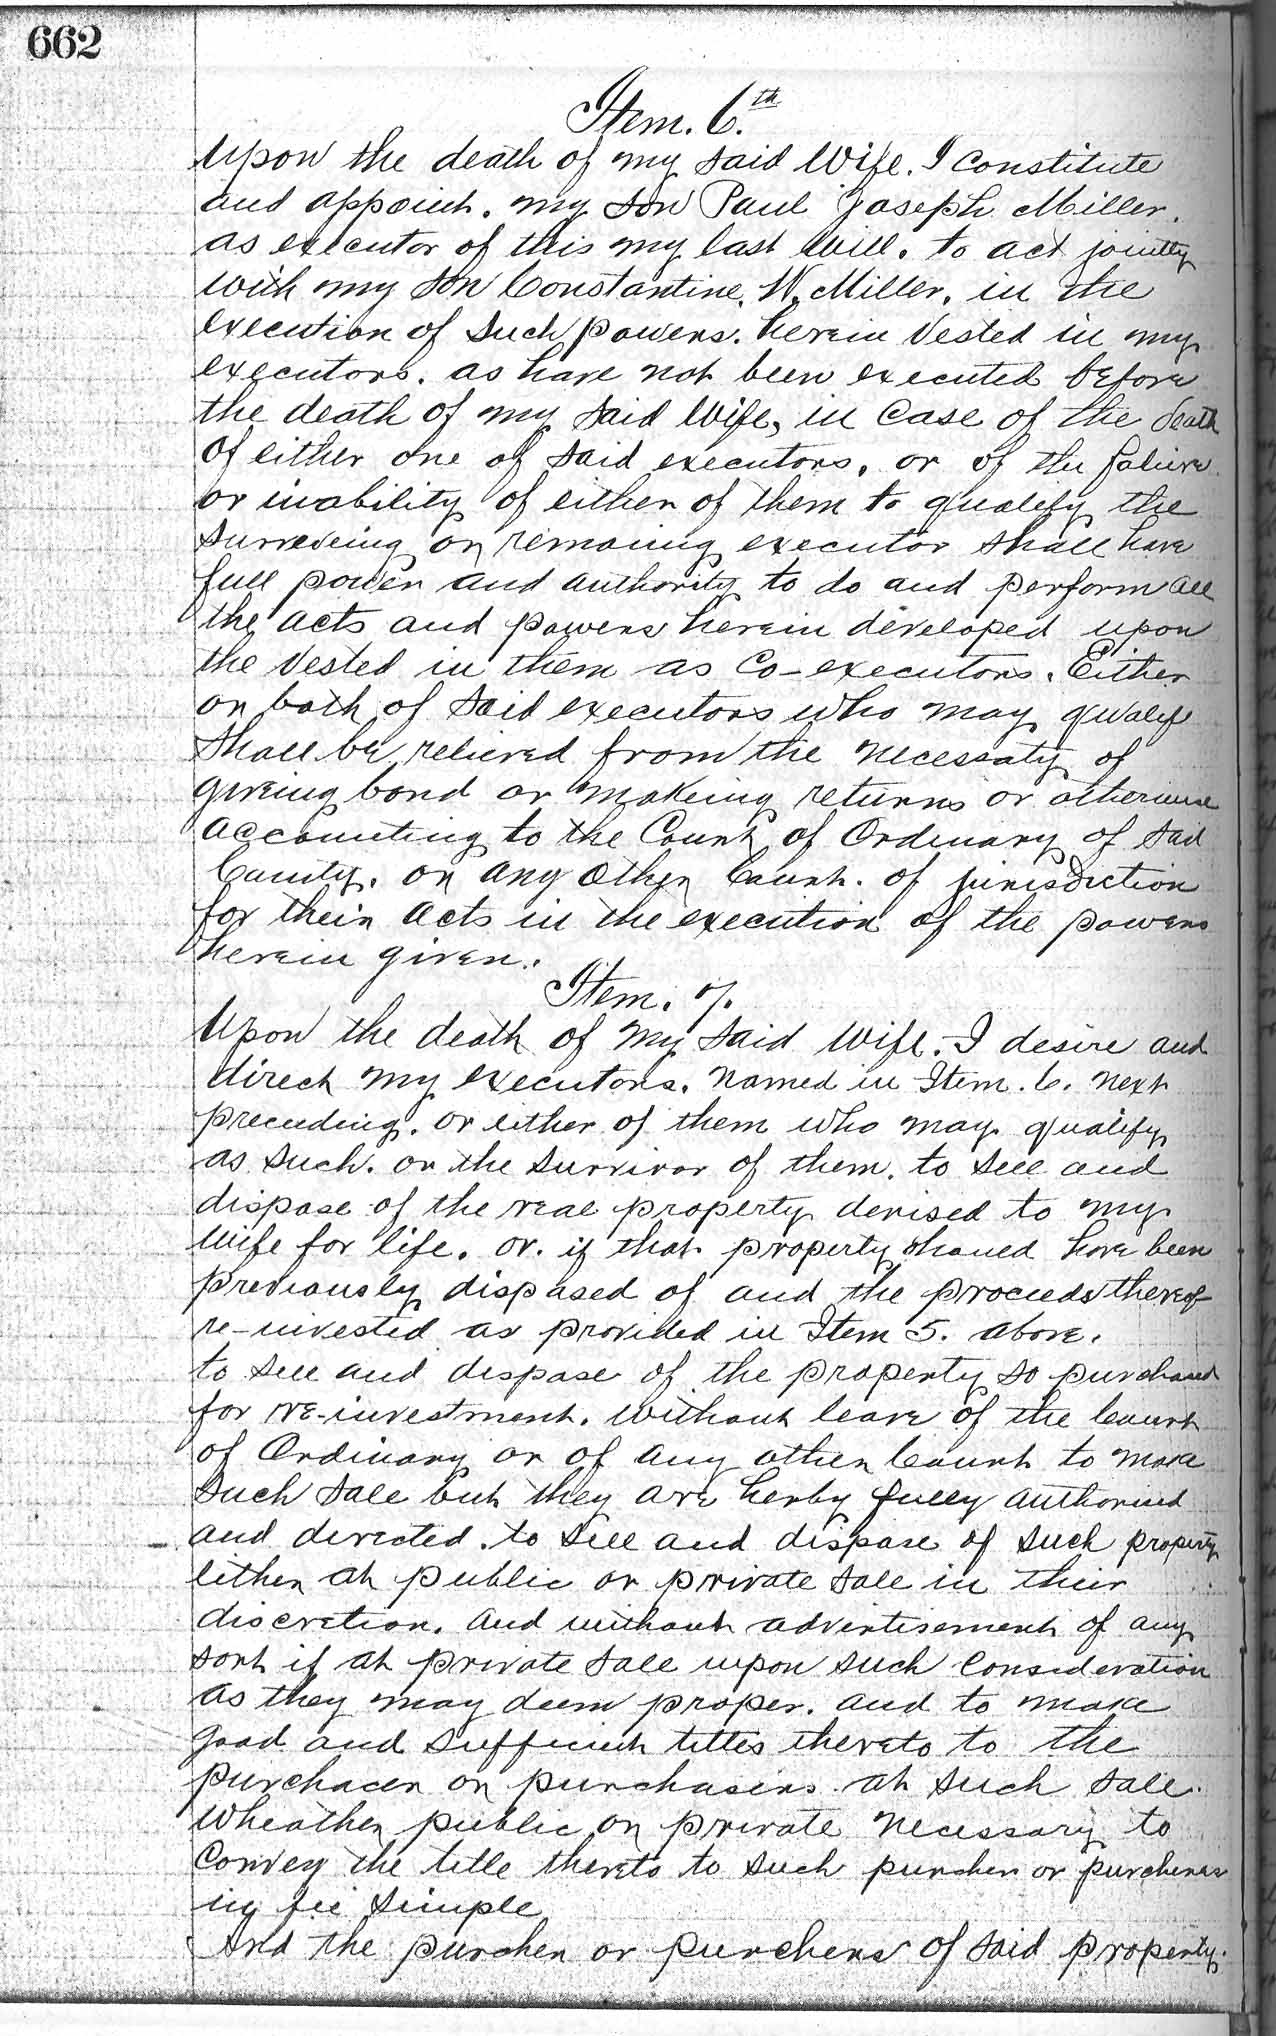 662
Item. 6.th
Upon the death of my said Wife. I constitute
and appoint. my son Paul Joseph Miller.
as executor of this my last will. to act jointly
with my son Constantine. W. Miller. in the
execution of such powers. herein vested in my
executors. as have not been executed before
the death of my said Wife, in case of the death
of either one of said executors. or of the faliure
or inability of either of them to qualify the
surreveing or remaing executor shall have
full power and authority to do and perform all
the acts and powers herein developed upon
the vested in them as Co-executors. Either
or both of said executors who may qualify
shall be relieved from the necessaty of
giveing bond or makeing returns or otherwise
accounting to the Court of Ordinary of said
County. or any other Court. of jurisdiction
for their acts in the execution of the powers
herein given.
Item. 7.
Upon the death of my said Wife. I desire and
direct my executors. named in Item. 6. next
preceeding. or either of them who may qualify
as such. or the survivor of them. to sell and
dispose of the real property devised to my
wife for life. or. if that property should have been
previously disposed of and the proceeds thereof
re-invested as provided in Item 5. above.
to sell and dispose of the property so purchased
for re-investment. without leave of the Court
of Ordinary or of any other Court to make
such sale but they are herby fully authorised
and directed. to sell and dispose of such property
either at public or private sale in their
discretion. and without advertisement of any
sort if at private sale upon such consideration
as they may deem proper. and to make
good and sufficient tittes thereto to the
purchacer or purchasers. at such sale.
wheather public or private necessary to
convey the title thereto to such purcher or purchers
in fee simple
And the purcher or purchers of said property.